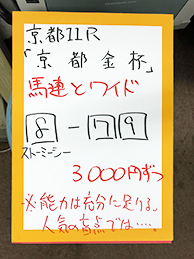 京都11R
「京都金杯」
馬連とワイド
8 - 7 9
ストーミーシー
3000円ずつ
※能力は充分に足りる。
人気の盲点では‥‥